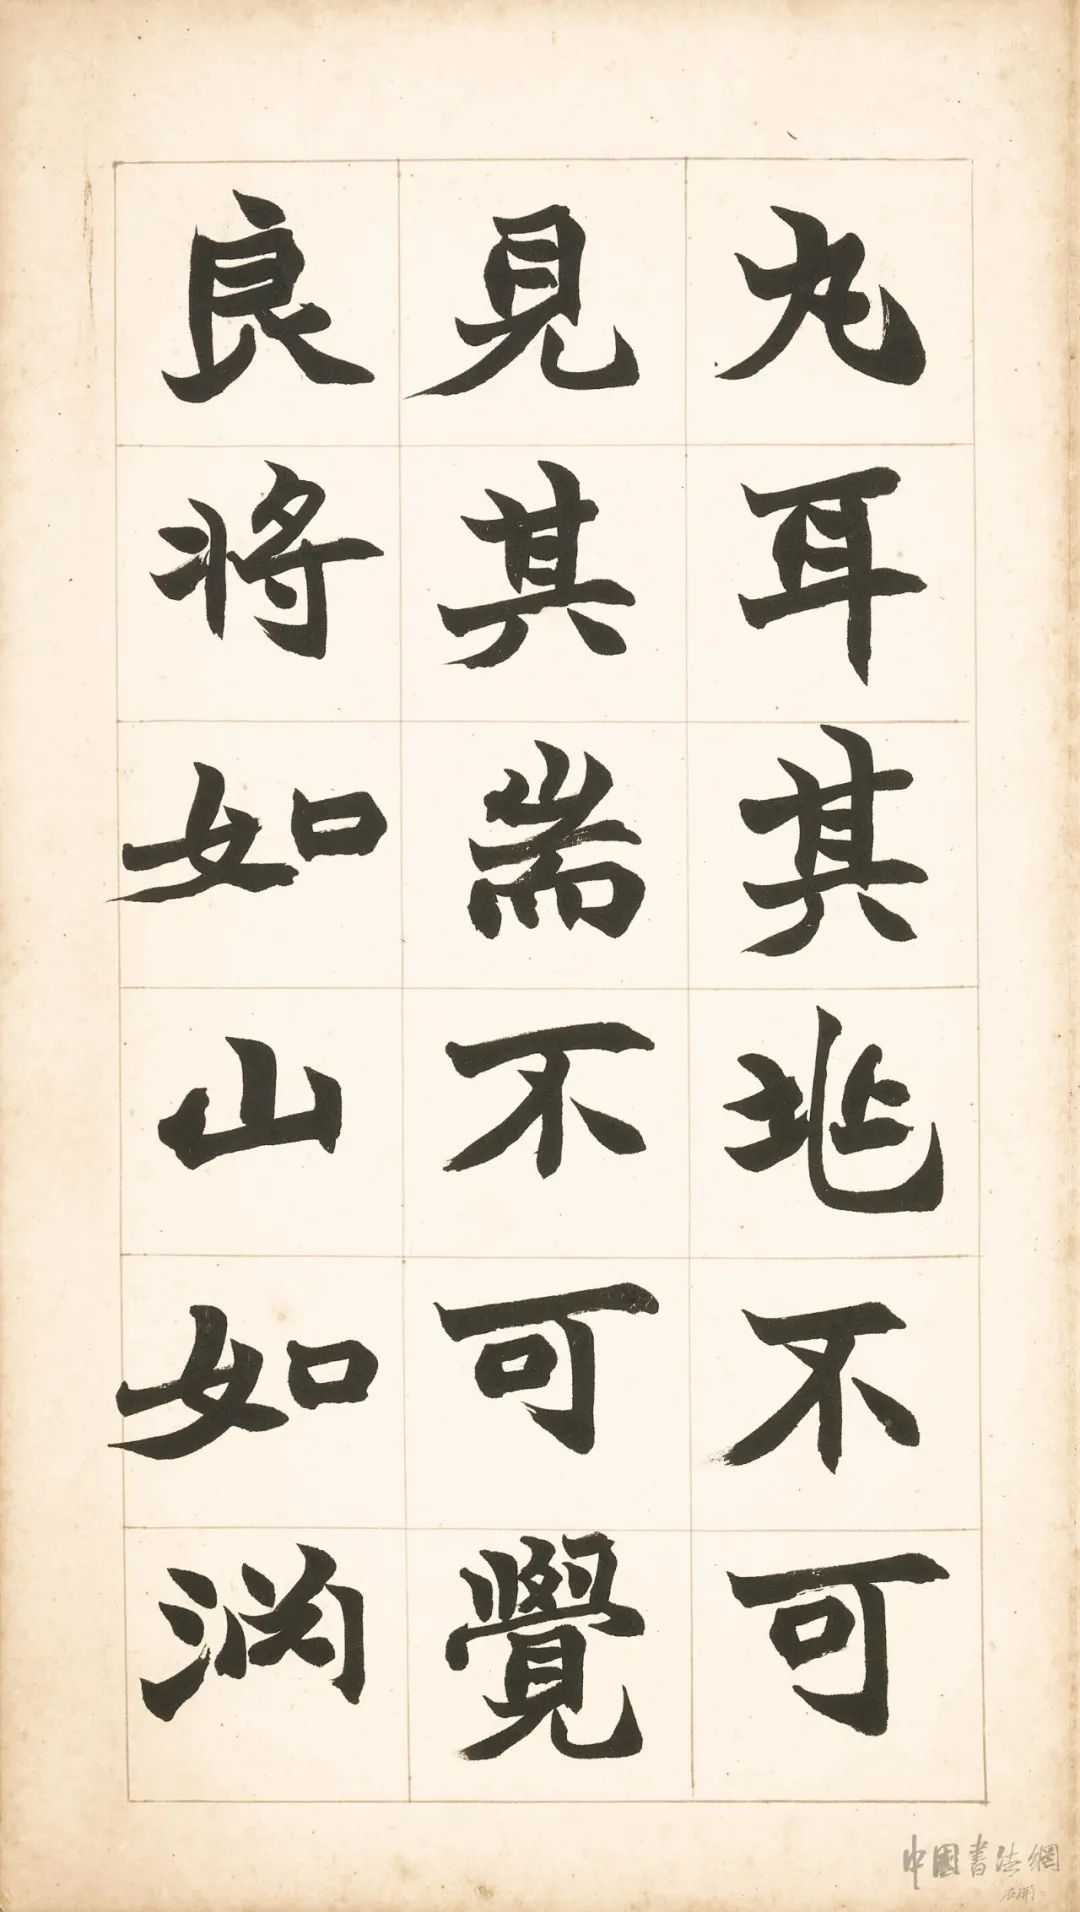 丸耳其兆不可
見其耑不可覺
良將如山如渕
中國書法網